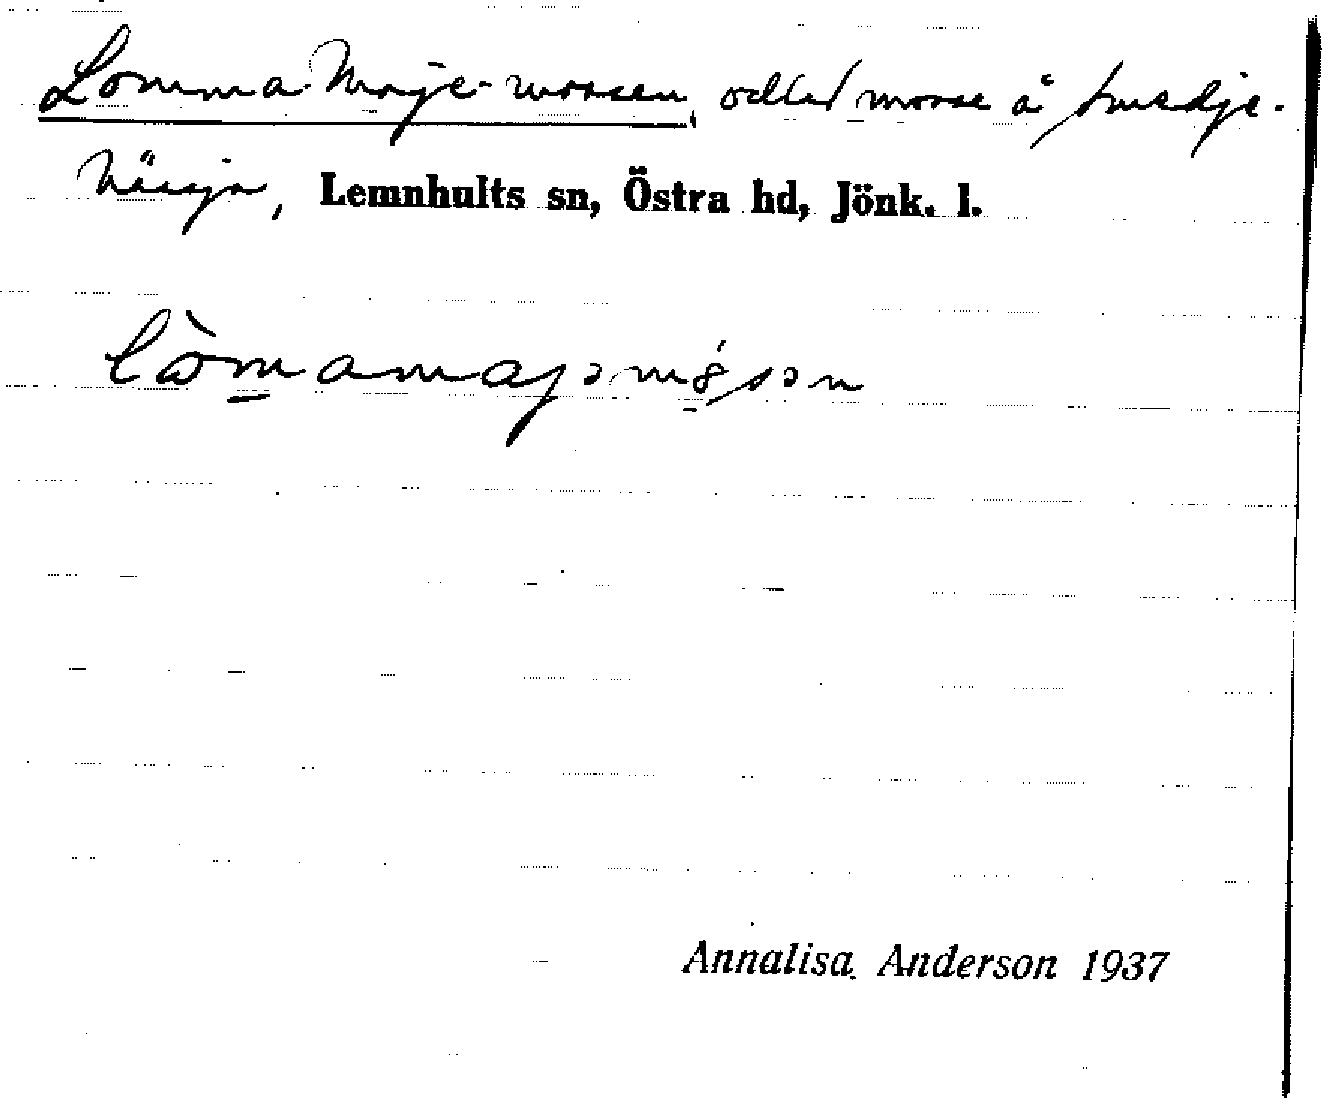 Lomma-Maje-mossen, odlad mosse å Smedje-
Nässja, Lemnhults sn, Östra hd, Jönk. l.
Annalisa Anderson 1937